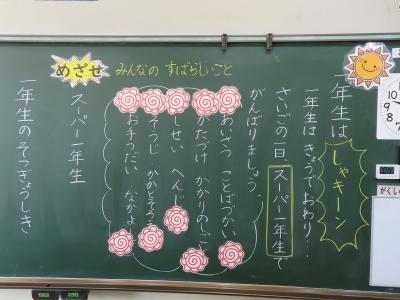 一年生は
しゃキーン
一年生は きょうで おわり…
さいごの一日、スーパー一年生で
がんばりましょう。
めざせ みんなの すばらしいこと
あいさつ ことばづかい
かたづけ かかりのしごと
しせい へんじ
そうじ かかとそろえ
お手つだい なかよし
スーパー一年生
一年生の そつぎょうしき
10
9
8